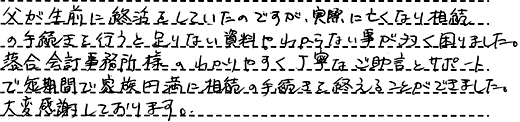 父が生前に終活をしていたのですが、実際に亡くなり相続
の手続きを行うと足りない資料やわからない事が多く困りました。
落合会計事務所様のわかりやすく丁寧なご助言とサポート
で短期間で家族円満に相続の手続きを終えることができました。
大変感謝しております。